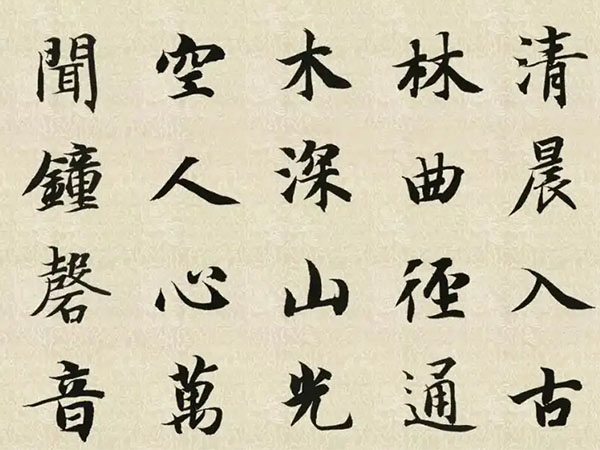 清晨入古
林曲徑通
木深山光
空人心萬
聞鐘磬音